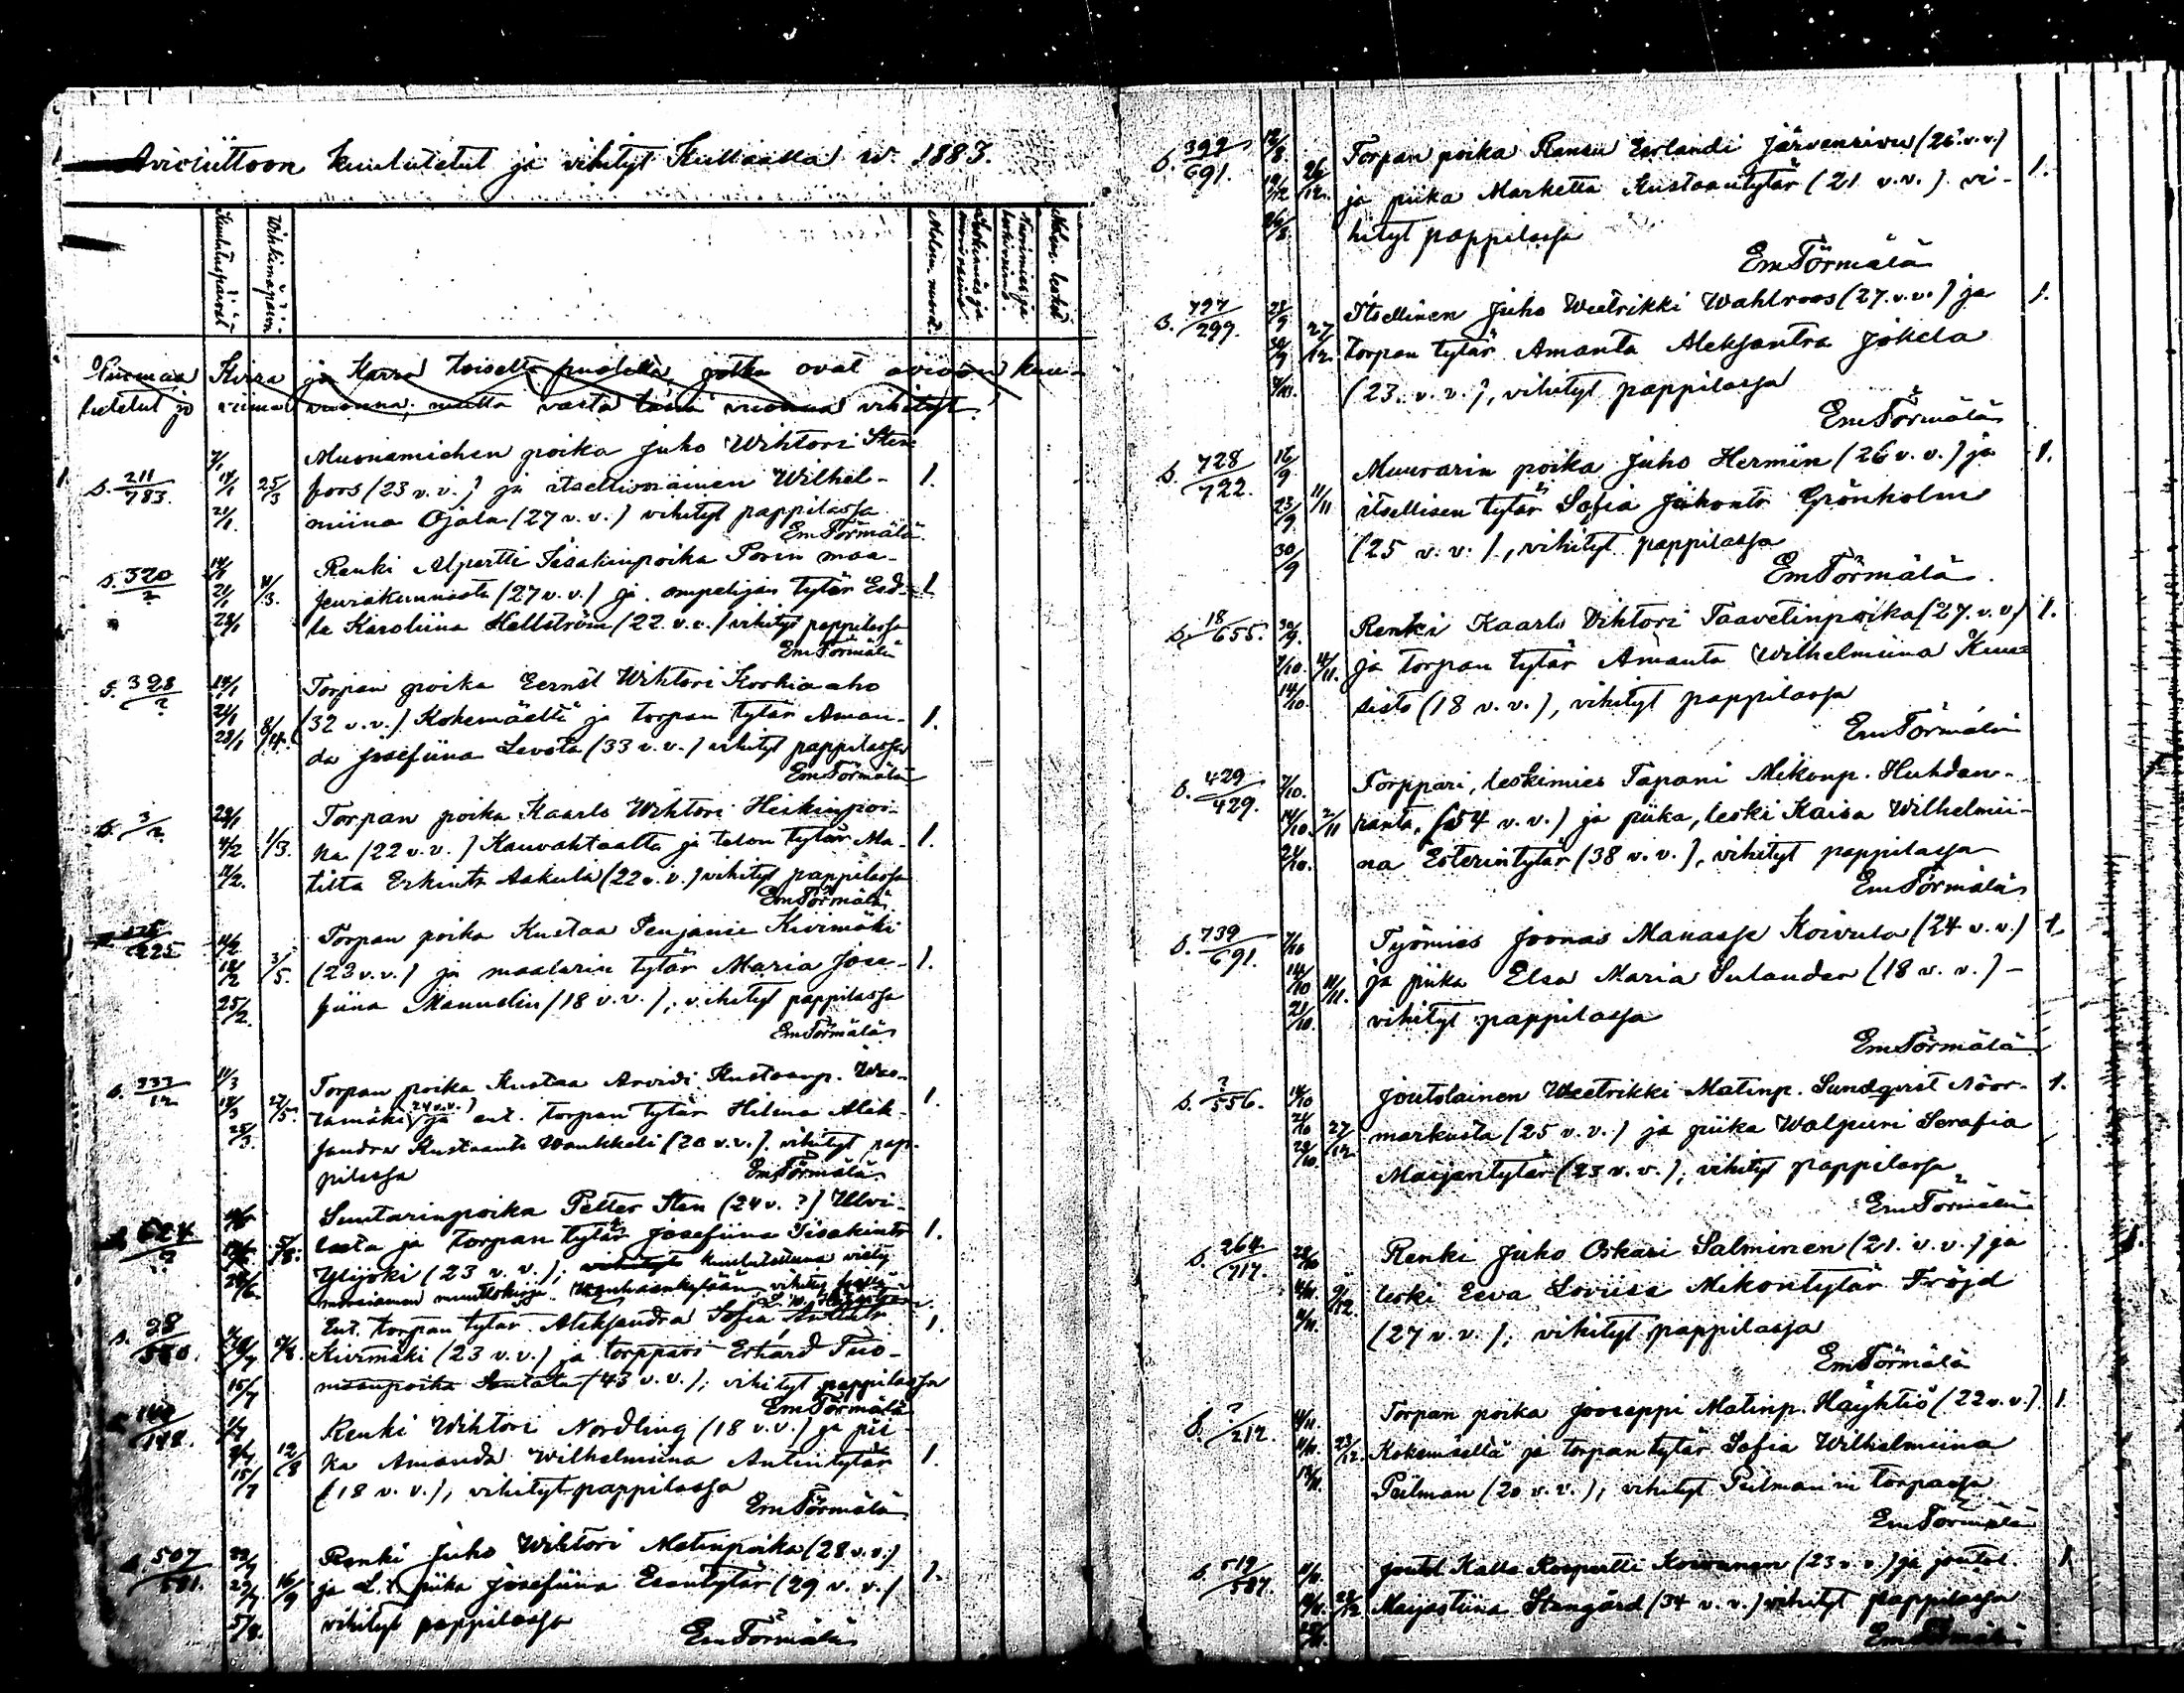 Avioliittoon kuulutetut ja vihityt Kullaalla w. 1883.
Kuulutuspäivät Vihkimäpäivä Molem. nuoria Leskimies ja nuori vaimo Nuorimies ja leskivaimo Molem. lesket
Karra toisella puolella, jotka ovat avioon kuu-
lutetut jo viime vuonna, mutta vasta tänä vuonna vihityt.
7/1 Muonamiehen poika Juho Wihtori Sten-
s. 211/783. 14/1 25/3 foos (23 v.v.) ja itsellismäinen Wilhel- 1.
21/1. miina Ojala (27 v.v.) vihityt pappilassa
Em Törmälä
14/1 Renki Alpertti Iisakinpoika Porin maa-
s. 320/? 21/1 11/3. seurakunnasta (27 v.v.) ja ompelijan tytär Ed- 1
28/1 la Karoliina Hellström (22 v.v.) vihityt pappilassa
Em Törmälä
s. 328/? 14/1 Torpan poika Eernst Wihtori Korkiaaho
21/1 8/4. (32 v.v.) Kokemäeltä ja torpan tytär Aman- 1.
28/1 da Josefiina Levota (33 v.v.) vihityt pappilassa
Em Törmälä
s. 3/2 28/1 Torpan poika Kaarlo Wihtori Heikinpoi-
4/2 1/3. ka (22 v.v.) Kauvahtaalta ja talon tytär Ma- 1.
11/2. tilta Erkintr Aakula (22 v.v.) vihityt pappilassa
Em Törmälä
225 11/2 Torpan poika Kustaa Penjami Kivimäki
18/2 3/5. (23 v.v.) ja maalarin tytär Maria Jose- 1.
25/2. fiina Manuelin (18 v.v.); vihityt pappilassa
Em Törmälä
s. 333/12 11/3 Torpan poika Kustaa Arvidi Kustaanp. Wes-
18/3 27/5. tamäki (24 v.v.) ja ent. torpan tytär Hilma Alek- 1.
25/3. sandra Kustaantr Wankkeli (20 v.v.), vihityt pap-
pilassa Em Törmälä
Suutarinpoika Petter Sten (24 v. ?) Ulvi-
624/? 5/8. lasta ja torpan tytär Josefiina Iisakintr 1.
24/6. Ylijoki (23 v.v.); vihityt kuulutettuna viety
morsiamen muuttokirja
s. 28/580. Ent. torpan tytär Aleksandra Sofia Anttintr 1.
Kivimäki (23 v.v.) ja torppari Erhard Tuo-
15/7 maanpoika (43 v.v.); vihityt pappilassa
Em Törmälä
148. 1/7 Renki Wihtori Nordling (18 v.v.) ja pii-
8/7 12/8 ka Amanda Wilhelmiina Antintytär 1.
15/7 (18 v.v.), vihityt pappilassa
Em Törmälä
s. 507/581. 22/7 Renki Juho Wihtori Matinpoika (28 v.v.)
29/7 16/9 ja L. t. piika Josefiina Esantytär (29 v.v.) 1.
5/8. vihityt pappilassa Em Törmälä
s. 392/691. 12/8 Torpan poika Ransu Eerlandi Järvensivu (26 v.v.)
19/12 26/12. ja piika Marketta Kustaantytär (21 v.v.) vi- 1.
26/8 hityt pappilassa
Em Törmälä
s. 797/299. 23/9 Itsellinen Juho Weetrikki Wahlroos (27. v.v.) ja 1.
30/9 27/12. torpan tytär Amanta Aleksantra Jokela
7/10. (23. v.v.), vihityt pappilassa
Em Törmälä
s. 728/722. 16/9 Muurarin poika Juho Hermin (26 v.v.) ja 1.
23/9 11/11 itsellisen tytär Sofia Juhontr Grönholm
30/9 (25 v.v.), vihityt pappilassa
Em Törmälä.
s. 18/655. 30/9. Renki Kaarlo Vihtori Taavetinpoika (27. v.v.) 1.
7/10. 11/11. ja torpan tytär Amanta Wilhelmiina Kuu-
14/10. sisto (18 v.v.), vihityt pappilassa
Em Törmälä
s. 429/429. 7/10. Torppari, leskimies Tapani Mikonp. Huhdan-
14/10. 2/11 ranta, (54 v.v.) ja piika, leski Kaisa Wilhelmii-
21/10. na Esterintytär (38 v.v.), vihityt pappilassa
Em Törmälä
s. 739/691. 7/10 Työmies Joonas Manasse Koivula (24 v.v.) 1.
14/10 11/11. ja piika Elsa Maria Sulander (18 v.v.) -
21/10. vihityt pappilassa
Em Törmälä
s. ?/556. 14/10 Joutolainen Weetrikki Matinp. Sundqvist Noor- 1.
21/10 27/12 markusta (25 v.v.) ja piika Walpuri Serafia
28/10. Maijantytär (23 v.v.); vihityt pappilassa
Em Törmälä
s. 264/717. 28/10 Renki Juho Oskari Salminen (21. v.v.) ja
4/11. 9/12 leski Eeva Loviisa Mikontytär Fröjd 1.
11/11. (27 v.v.); vihityt pappilassa
Em Törmälä
s. ?/212. 4/11. Torpan poika Jooseppi Matinp. Häyhtiö (22 v.v.) 1.
11/11. 23/12. Kokemäeltä ja torpan tytär Sofia Wilhelmiina
18/11. Piilman (20 v.v.), vihityt Piilmanin torpassa
Em Törmälä
s. 519/587. 11/11. joutol Kalle Roopertti Koivunen (23 v.v.) ja joutol. 1.
18/11. 28/12 Maijastiina Stengård (34 v.v.) vihityt pappilassa
25/11. Em Törmälä